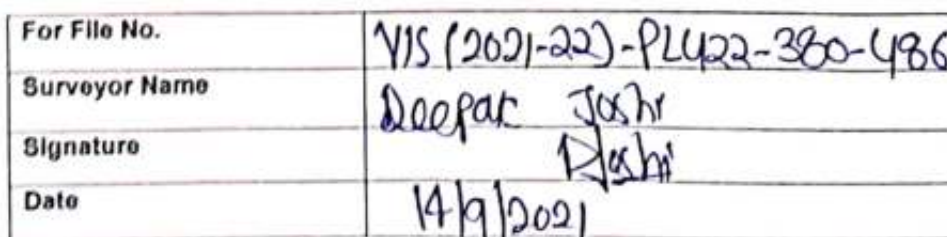 For File No. VIS (2021-22)-PL422-380-486
Surveyor Name Deepak Joshi
Signature DJoshi
Date 14/9/2021